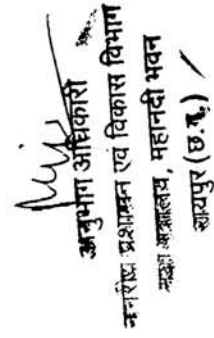 अनुभाग अधिकारी
नगरीय प्रशासन एवं विकास विभाग
मंत्रालय, महानदी भवन
रायपुर (छ.ग.)